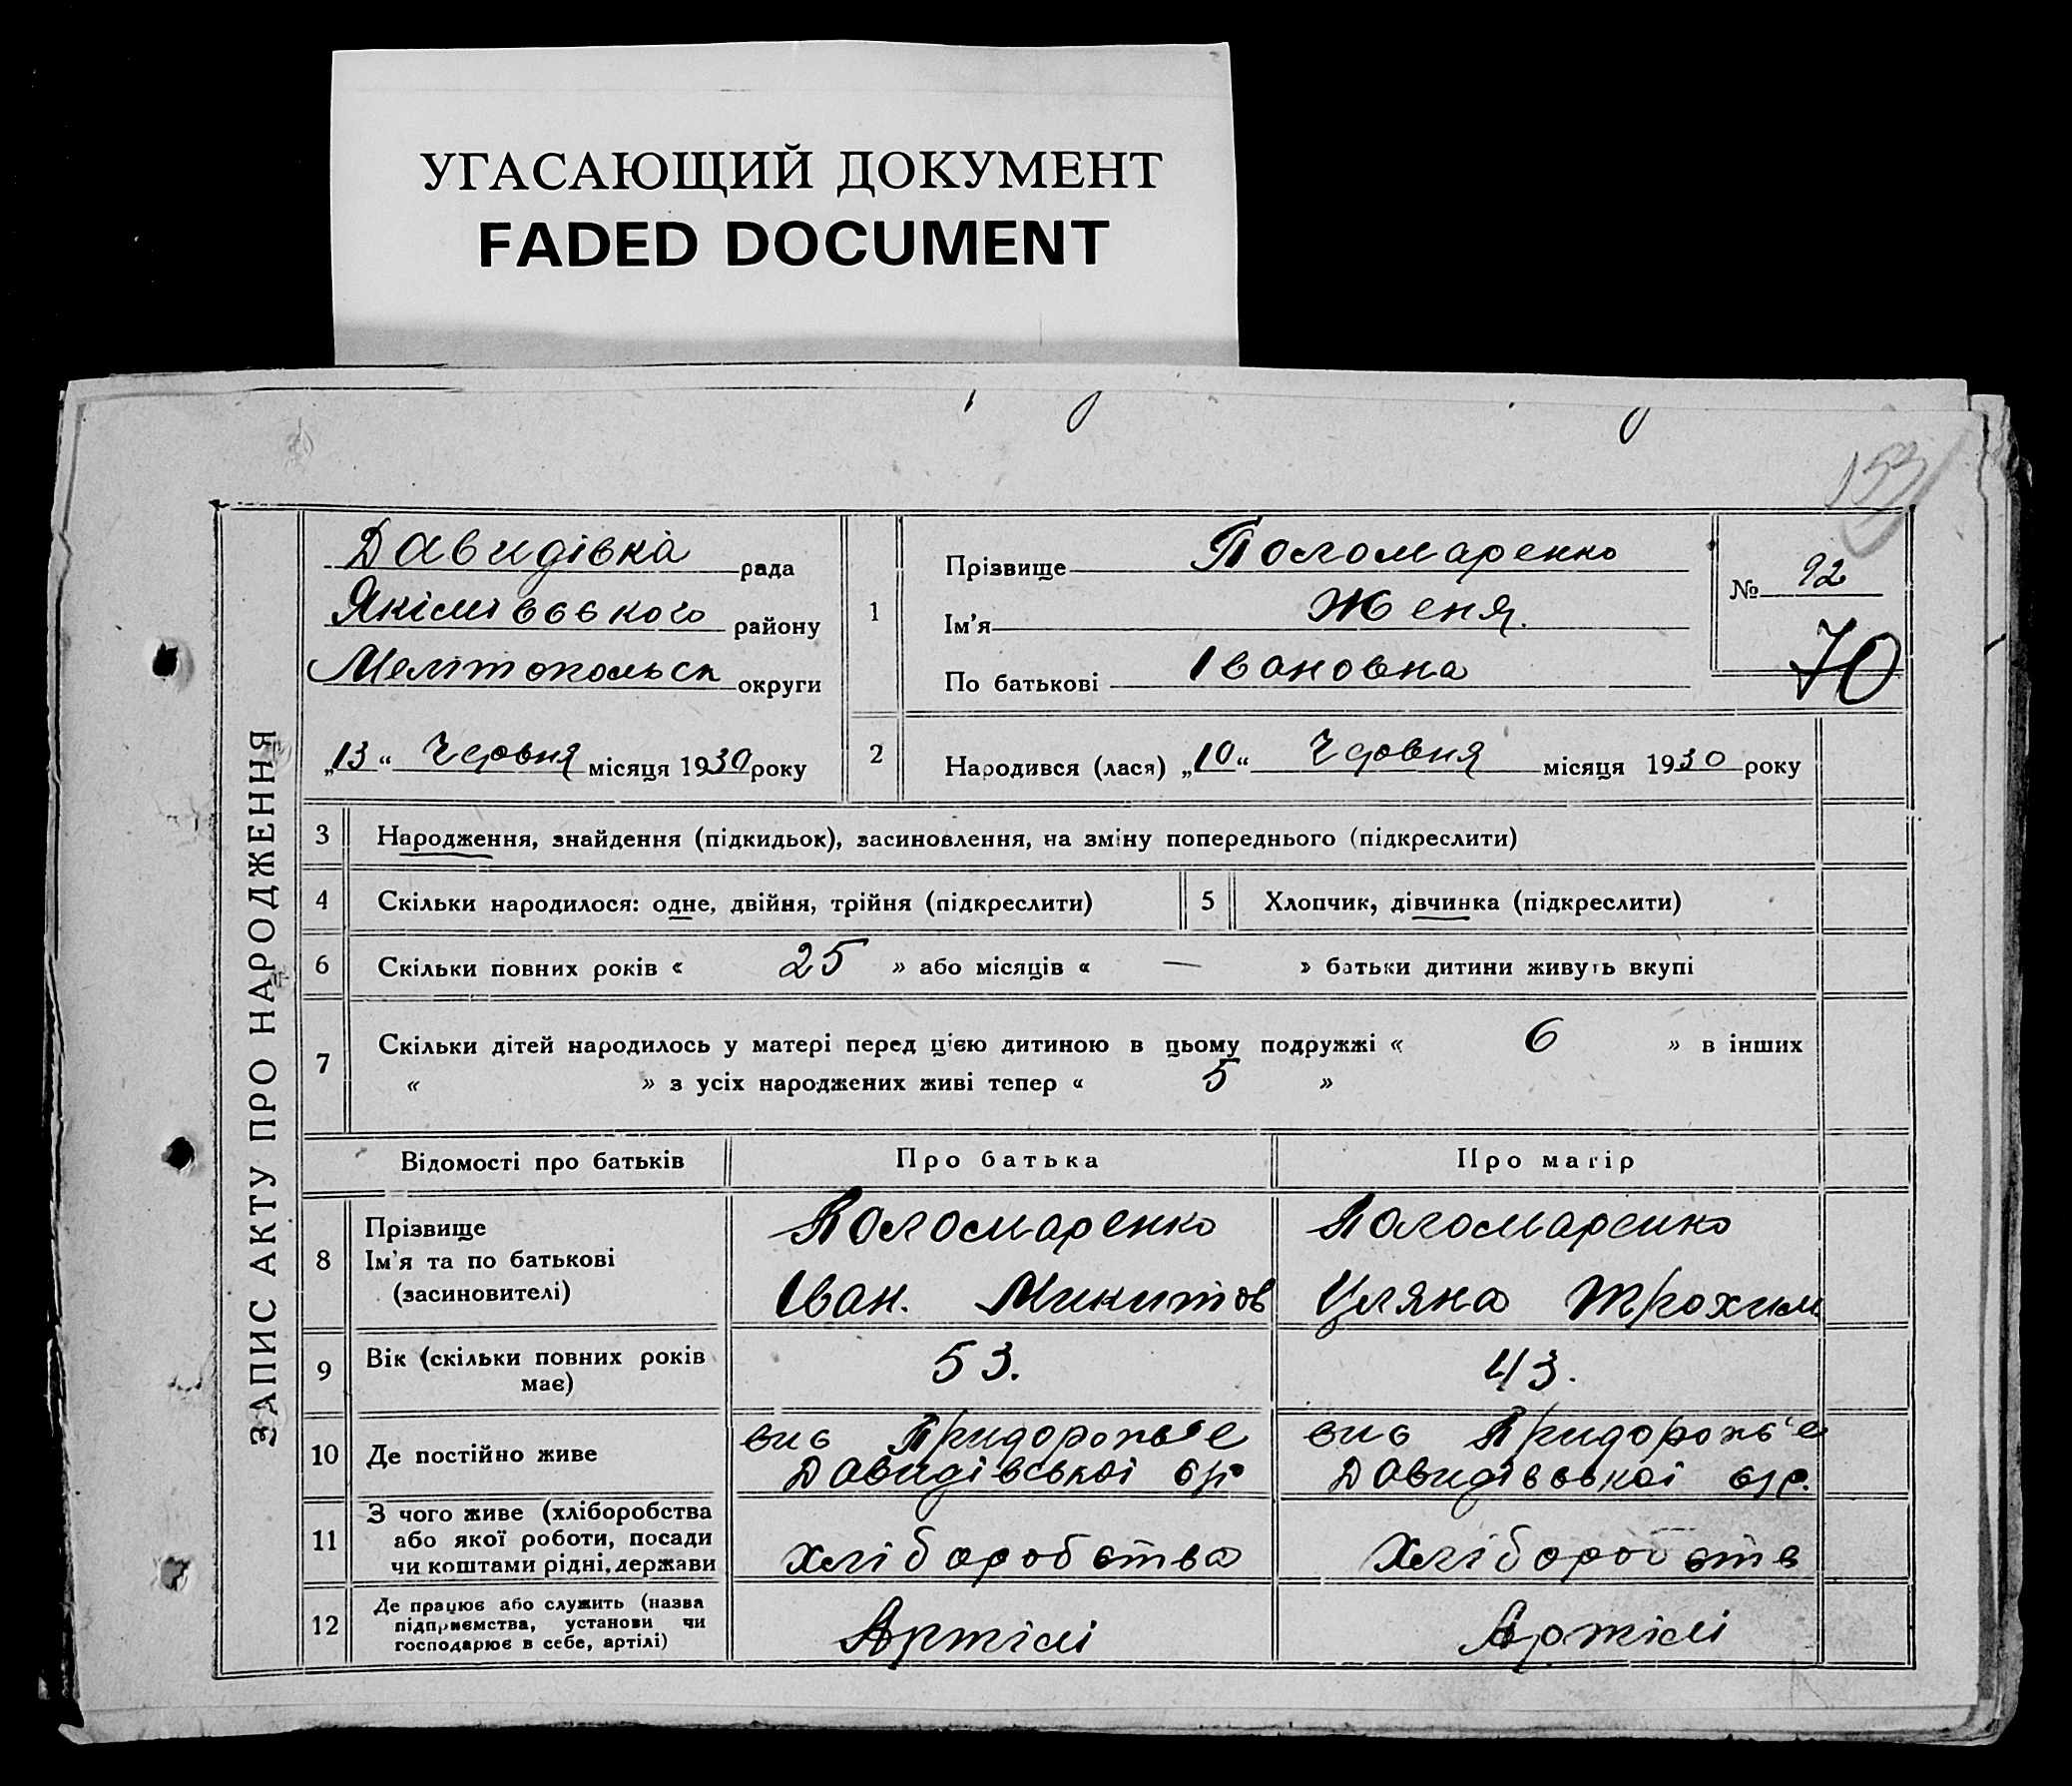 УГАСАЮЩИЙ ДОКУМЕНТ
FADED DOCUMENT
153
ЗАПИС АКТУ ПРО НАРОДЖЕННЯ
Давидівка рада
Якімівського району
Мелітопольськ округи
„13“ Червня місяця 1930 року
1
Прізвище Поломаренко
Ім'я Женя.
По батькові Івановна
№ 92
70
2 Народився (лася) „10“ Червня місяця 1930 року
3 Народження, знайдення (підкидьок), засиновлення, на зміну попереднього (підкреслити)
4 Скільки народилося: одне, двійня, трійня (підкреслити) 5 Хлопчик, дівчинка (підкреслити)
6 Скільки повних років « 25 » або місяців « — » батьки дитини живуть вкупі
7 Скільки дітей народилось у матері перед цією дитиною в цьому подружжі « 6 » в інших
« » з усіх народжених живі тепер « 5 »
Відомості про батьків Про батька Про матір
8 Прізвище Поломаренко Поломаренко
Ім'я та по батькові
(засиновителі) Іван. Микитов Уляна Трохим
9 Вік (скільки повних років має) 53. 43.
10 Де постійно живе
вис Придорожь'е вис Придорожь'е
Давидівської с/р Давидівської с/р.
11 З чого живе (хліборобства
або якої роботи, посади
чи коштами рідні, держави хліборобства хліборобств
12 Де працює або служить (назва
підприємства, установи чи
господарює в себе, артілі) Артілі Артілі